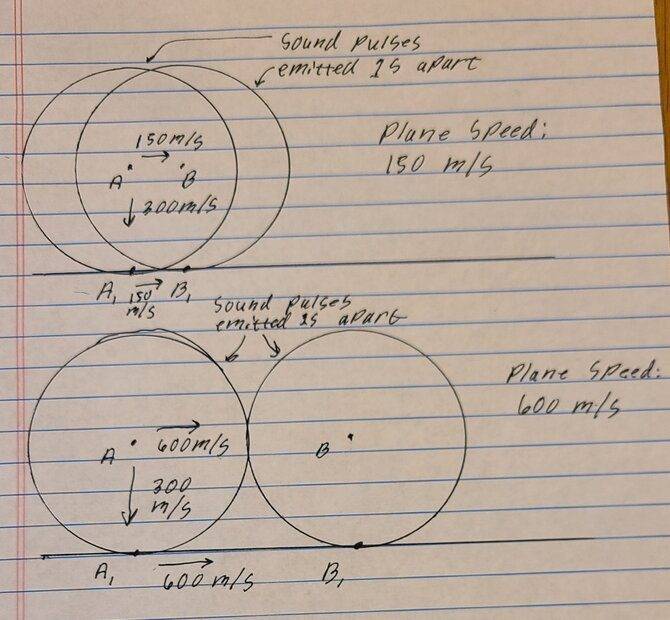 Sound Pulses
emitted 1S apart
Plane Speed:
150 m/s
150m/s
A
B
300m/s
A₁
150
m/s
B₁
Sound Pulses
emitted 1S apart
Plane Speed:
600 m/s
A
600m/s
B
300
m/s
A₁
600 m/s
B₁